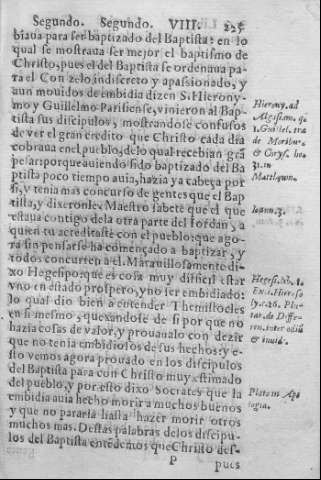 Segundo. Segundo. VIII. 225
biaua para ser baptizado del Baptista: en lo
qual se mostraua ser mejor el baptismo de
Christo, pues el del Baptista se ordenaua pa-
ra el Con zelo indiscreto y apasionado, y
aun mouidos de embidia dizen S. Hierony-
mo y Guillelmo Parisiense, vinieron al Bap-
tista sus discipulos, mostrandose confusos
de ver el gran credito que Christo cada dia
cobraua enel pueblo, delo qual recebian grã
pesar: porque auiendo sido baptizado del Ba
ptista poco tiempo auia, hazia ya cabeça por
si, y tenia mas concurso de gentes que el Bap
tista, y dixeronle: Maestro sabete que el que
estaua contigo dela otra parte del Iordan, a
quien tu acreditaste con el pueblo: que ago-
ra sin pensarse ha començado a baptizar, y
todos concurren a el. Marauillosamente di-
xo Hegesipo: que es cosa muy dificil estar
vno en estado prospero, y no ser embidiado:
lo qual dio bien a entender Themistocles
en si mesmo, quexandose de si por que no
hazia cosas de valor, y prouaualo con dezir
que no tenia embidiosos de sus hechos: y e-
sto vemos agora prouado en los discipulos
del Baptista para con Christo muy estimado
del pueblo, y por esto dixo Socrates que la
embidia auia hecho morir a muchos buenos
y que no pararia hasta hazer morir otros
muchos mas. Destas palabras delos discipu-
los del Baptista entēdemos que Christo des-
P
pues
Hierony. ad
Algasiam. q.
1. Guilel. tra
de Moribus.
& Chrys. ho.
31. in
Matthęum.
Ioann. 3.
Hegesi. lib. 1.
Exci. Hieroso
Plu
tar. de Diffe-
ren. inter odiũ
& inuid.
Plato in Apo
logia.